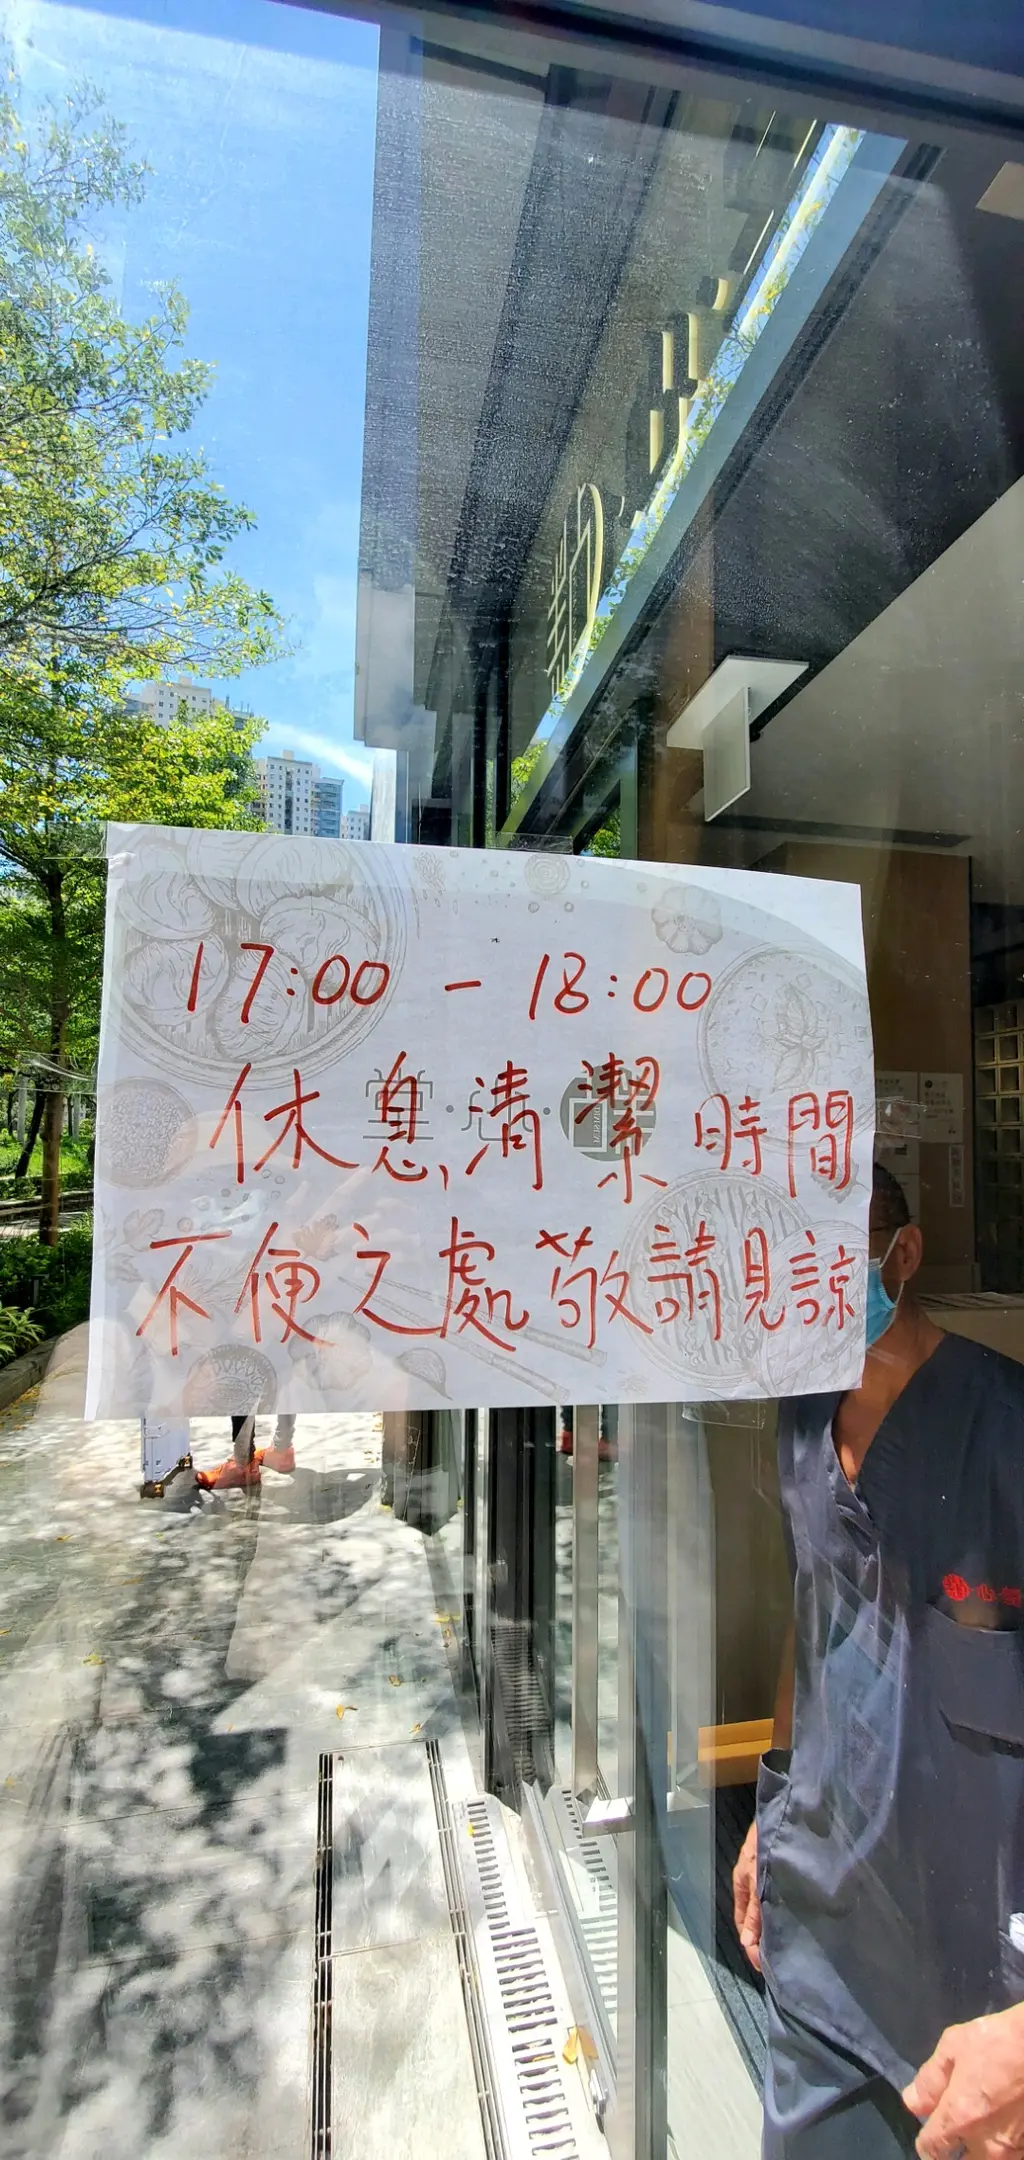 17:00 - 18:00
休息,清潔時間
不便之處敬請見諒